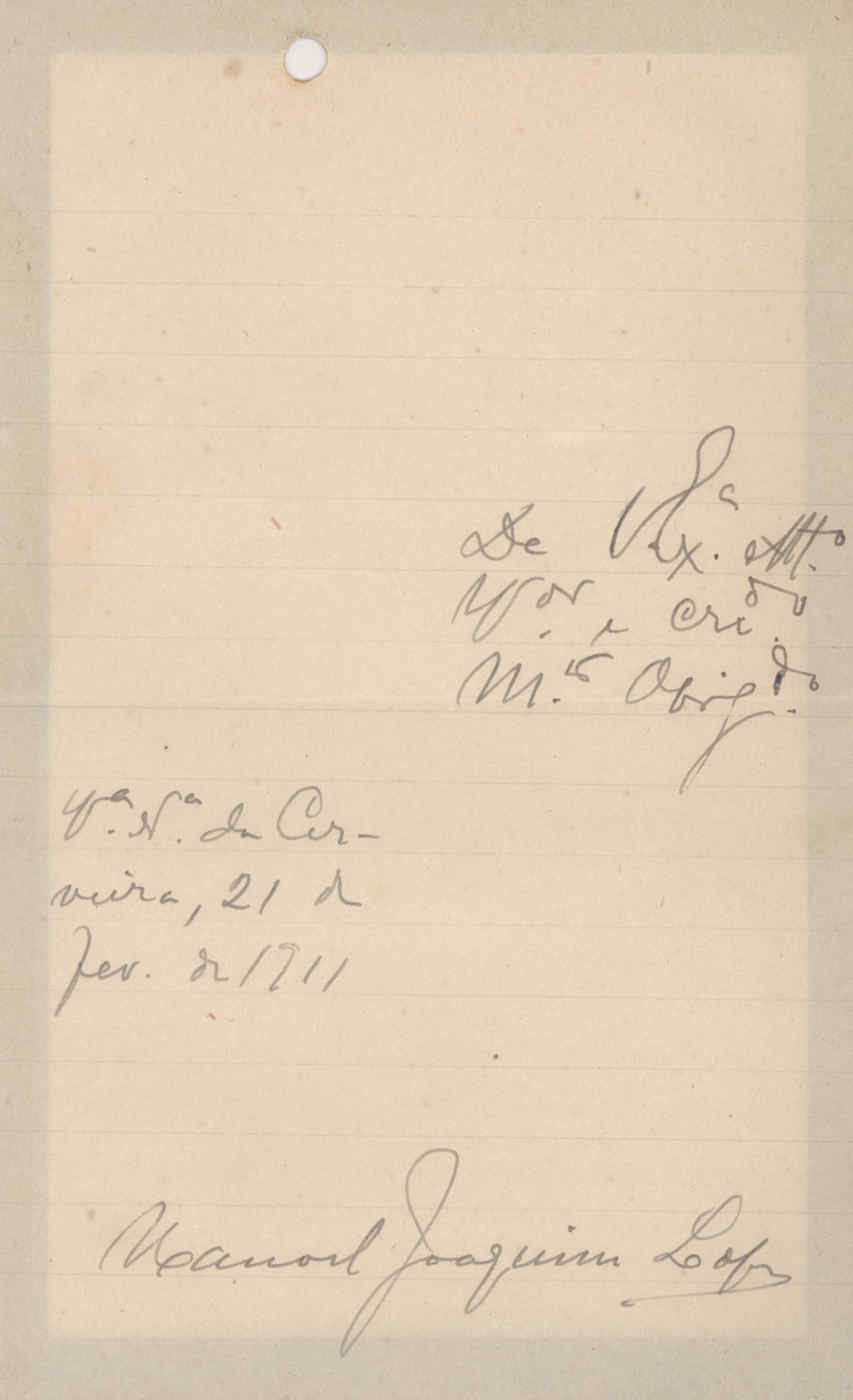 De V. Ex.ª Att.º
V.ᵒʳ e Cri.ᵈᵒ
M.ᵗᵒ Obrig.ᵈᵒ
V.ª N.ª da Cer-
veira, 21 de
fev. de 1911
Manoel Joaquim Lopes